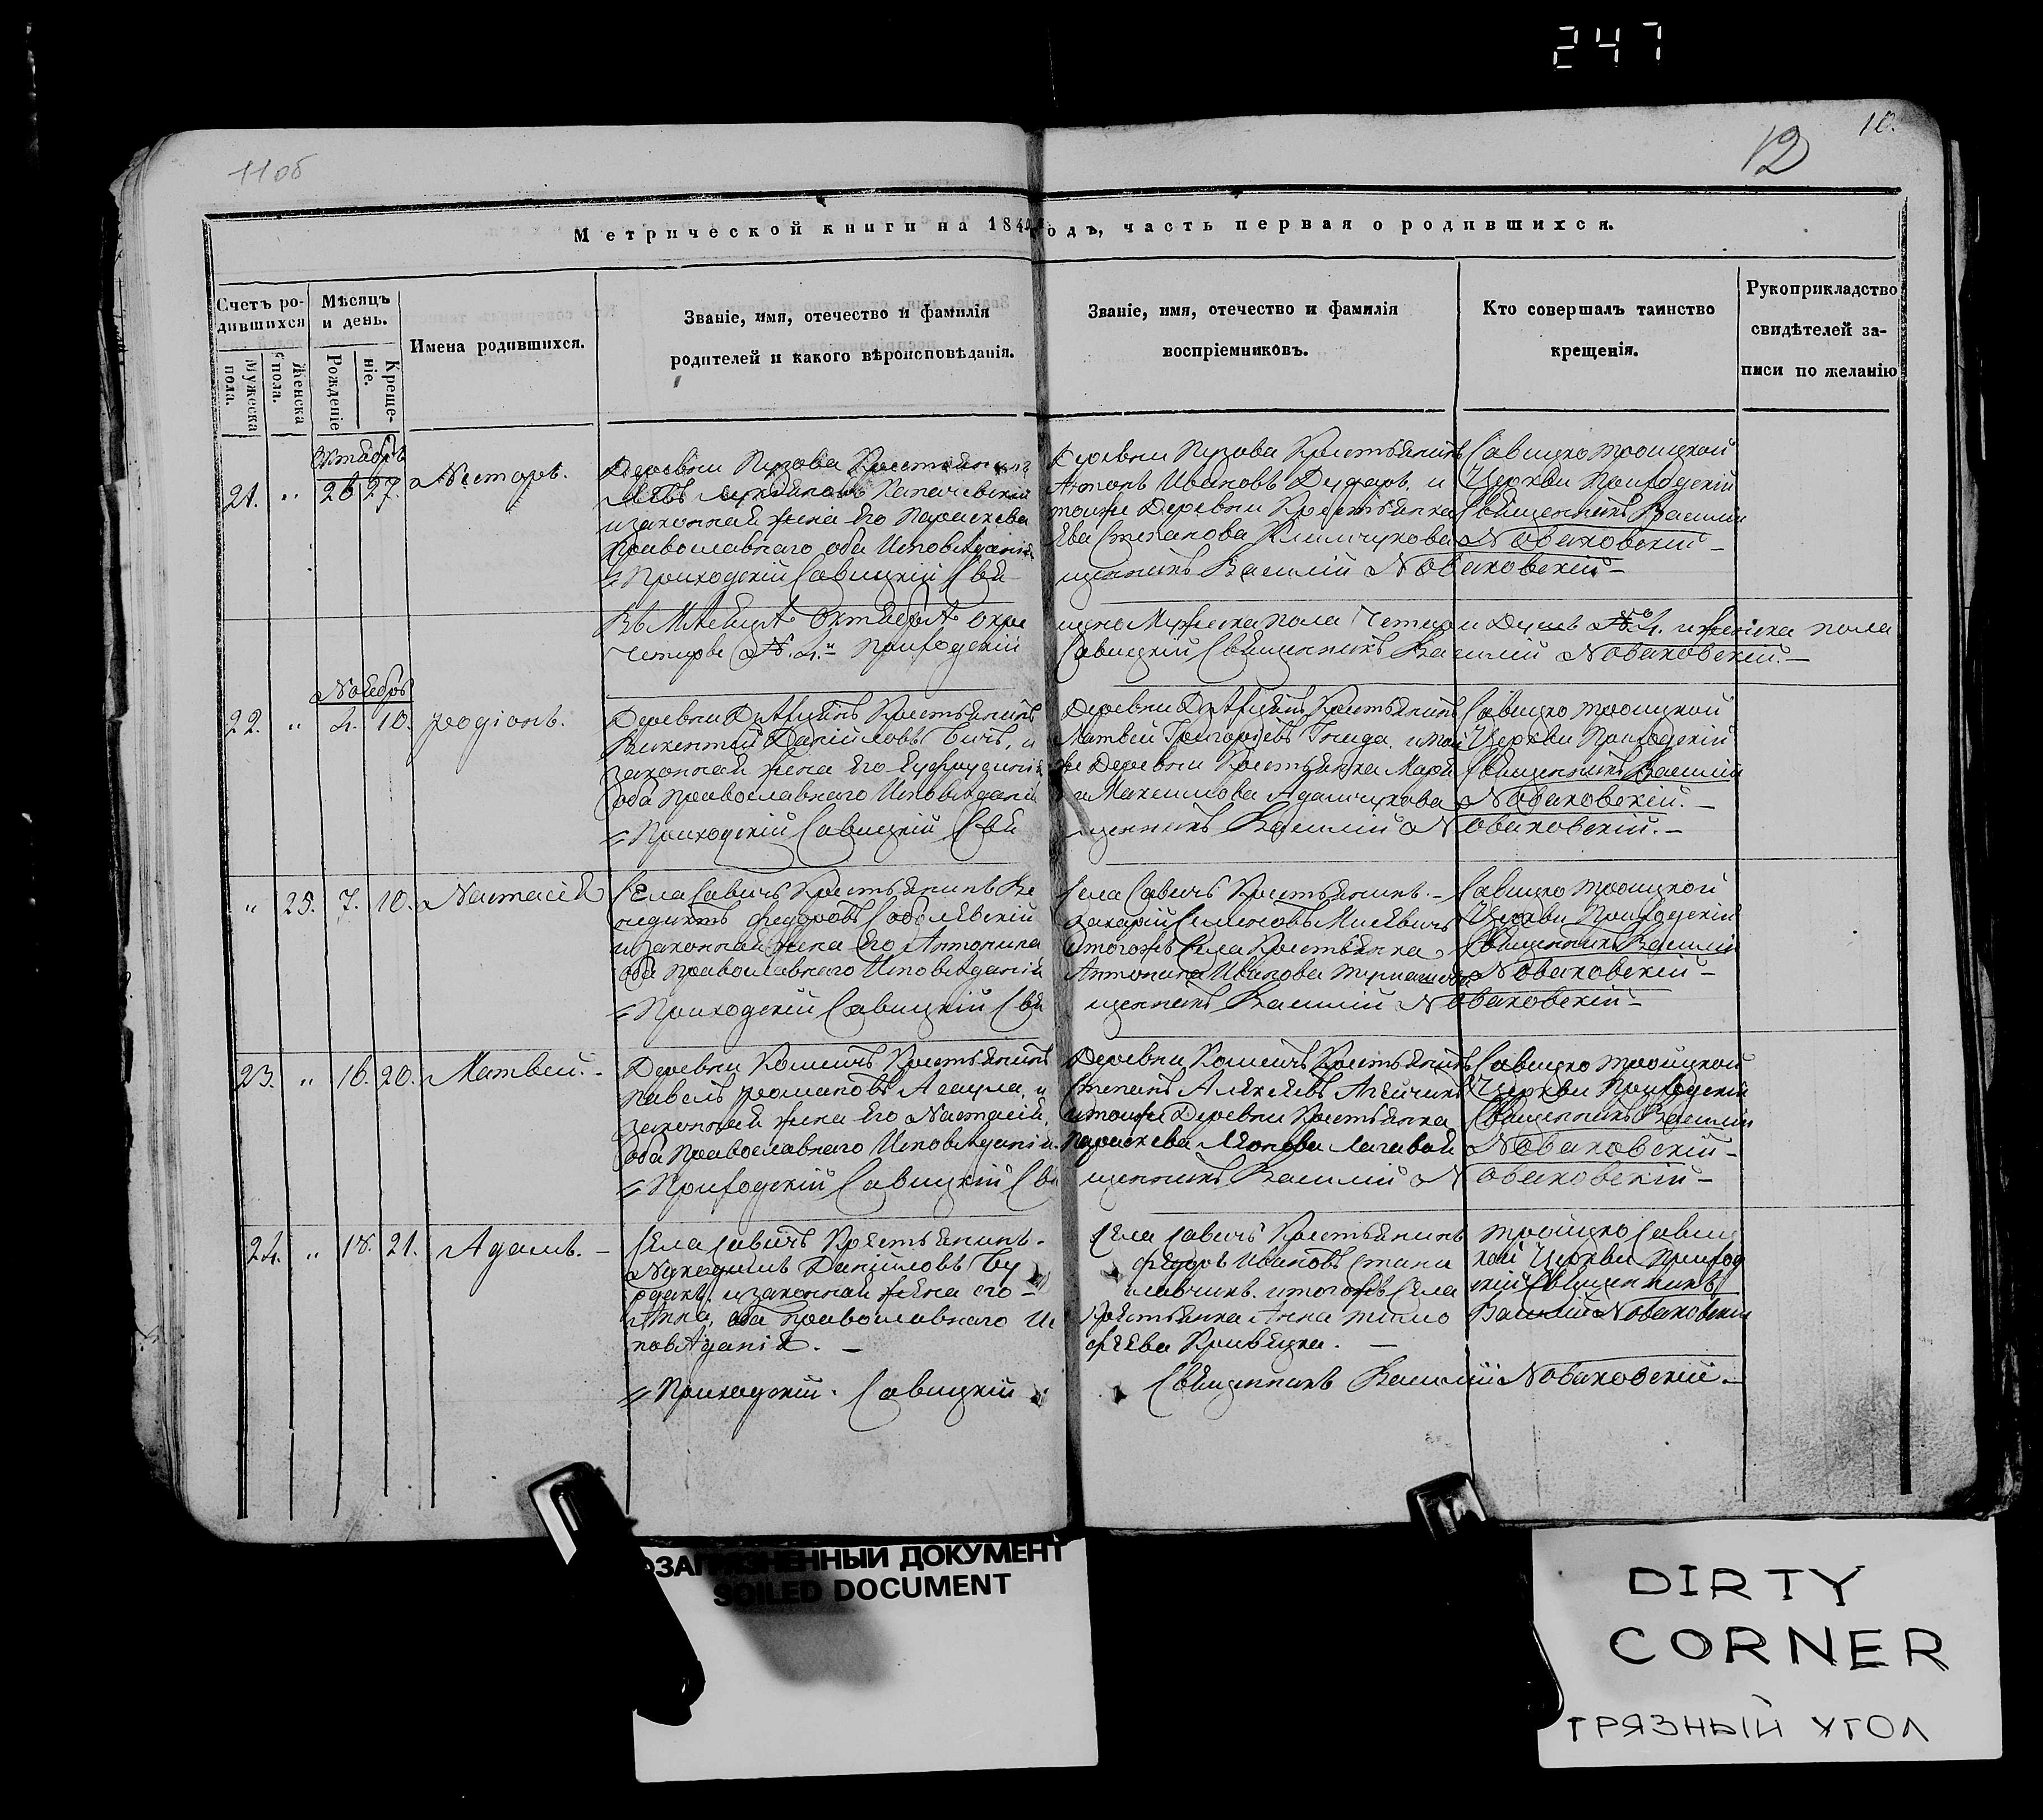 247
11об
12
10.
Метрической книги на 184 годъ, часть первая о родившихся.
Счетъ родившихся
Мужеска пола.
Женска пола.
Мѣсяцъ и день.
Рожденіе
Крещеніе.
Имена родившихся.
Званіе, имя, отечество и фамилія
родителей и какого вѣроисповѣданія.
Званіе, имя, отечество и фамилія
воспріемниковъ.
Кто совершалъ таинство
крещенія.
Рукоприкладство
свидѣтелей за-
писи по желанію
Октябрь
21. " 26 27. Несторъ.
Деревни Пузова Крестьянинъ
и законная жена его Параскева
Православнаго оба Исповѣданія
Приходскій Савицкій Свя
Деревни Пузова Крестьянинъ
Антонъ Ивановъ и
тойже Деревни Крестьянка
Ева Степанова Климчукова
щенникъ Василій Новаковскій
Савицко Троицкой
Церкви Приходскій
Священникъ Василій
Новаковскій
Въ Мѣсяцѣ Октябрѣ окре
щено Мужеска пола Четыри Душь №. 4. и женска пола
Четырѣ №. 4. Приходскій
Савицкій Священникъ Василій Новаковскій.
Ноябрь
22. " 4. 10. Родіонъ.
Деревни Крестьянинъ
Викентій Даніиловъ Бичъ, и
законная жена его
оба Православнаго Исповѣданія
Приходскій Савицкій Свя
Деревни Крестьянинъ
Матвей Григоріевъ Гнида. и той
же Деревни Крестьянка Мари
я Максимова Адамчукова
щенникъ Василій Новаковскій.
Савицко Троицкой
Церкви Приходскій
Священникъ Василій
Новаковскій.
" 25. 7. 10. Настасія
Села Савичъ Крестьянинъ Ве
недиктъ Федоровъ Соболевскій
и законная жена его Антонина
оба Православнаго Исповѣданія
Приходскій Савицкій Свя
Села Савичъ Крестьянинъ.
Захарій Семеновъ
и тогожъ Села Крестьянка
Антонина Иванова
щенникъ Василій Новаковскій
Савицко Троицкой
Церкви Приходскій
Священникъ Василій
Новаковскій
23. " 16. 20. Матвей.
Деревни Крестьянинъ
Павелъ Романовъ Асаула, и
законная жена его Настасія,
оба Православнаго Исповѣданія.
Приходскій Савицкій Свя
Деревни Крестьянинъ
Степанъ Алексеевъ
и тойже Деревни Крестьянка
Параскева
щенникъ Василій Новаковскій
Савицко Троицкой
Церкви Приходскій
Священникъ Василій
Новаковскій
24. " 18. 21. Адамъ.
Села Савичъ Крестьянинъ.
Даніиловъ Бу
и законная жена его
Анна, оба православнаго Ис
повѣданія.
Приходскій. Савицкій
Села Савичъ Крестьянинъ
Федоръ Ивановъ Стани
славчикъ. и тогожъ Села
Крестьянка Анна Тимо
феева Кривецка.
Священникъ Василій Новаковскій.
Троицко Савиц
кой Церкви Приход
скій Священникъ
Василій Новаковскій
ЗАГРЯЗНЕННЫЙ ДОКУМЕНТ
SOILED DOCUMENT
DIRTY
CORNER
ГРЯЗНЫЙ УГОЛ